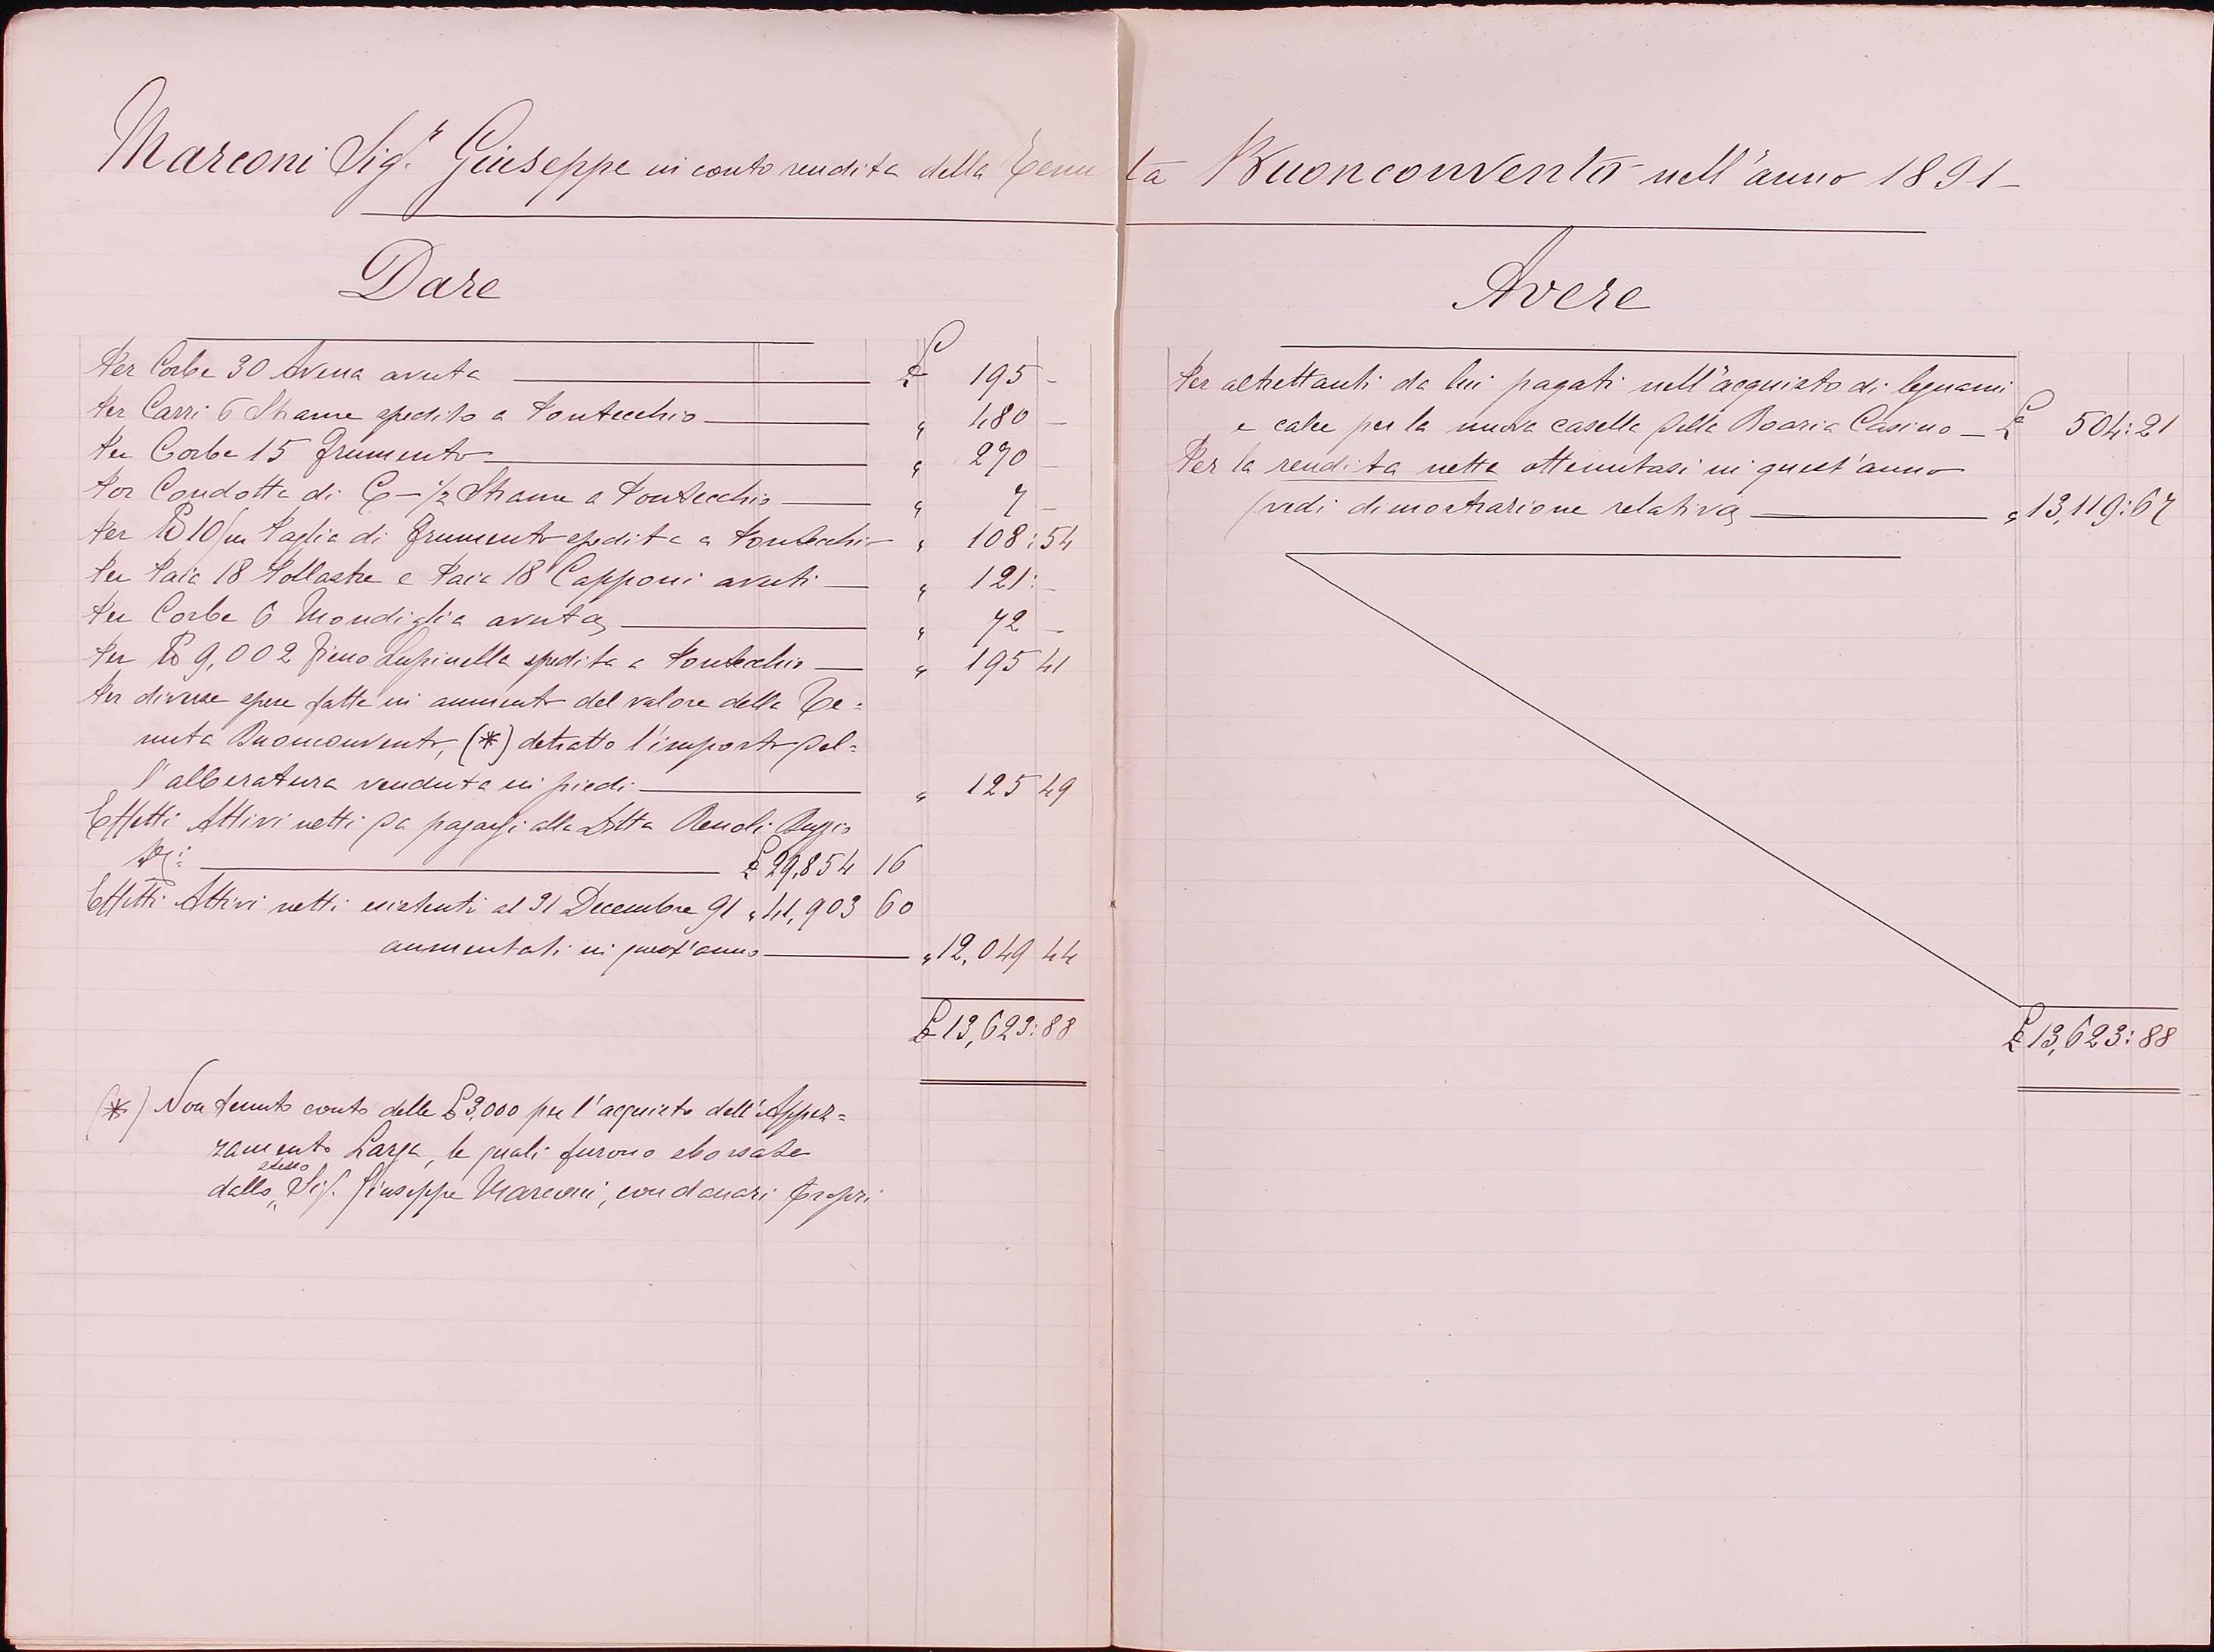 Marconi Sig.r Giuseppe in conto rendita della Tenuta Buonconvento nell'anno 1891 –
Dare
Per Corbe 30 Avena avuta £ 195 –
Per Carri 6 Strame spedito a Pontecchio „ 480 –
Per Corbe 15 frumento „ 270 –
Per Condotta di C – 1/2 Strame a Pontecchio „ 7 –
Per 10/m Paglia di frumento spedita a Pontecchio „ 108:54
Per Paia 18 Pollastre e Paia 18 Capponi avuti „ 121: –
Per Corbe 6 Mondiglia avuta „ 72 –
Per 9,002 fieno Lupinella spedita a Pontecchio „ 195 41
Per diverse spese fatte in aumento del valore della Te=
nuta Buonconvento, (*) detratto l'importo del=
l'alberatura venduta in piedi „ 125 49
Effetti Attivi netti da pagarsi alla Ditta Renoli Buggio
£ 29,854 16
Effetti Attivi netti esistenti al 31 Decembre 91 „ 41,903 60
aumentati in quest'anno „ 12,049 44
£ 13,623:88
(*) Non tenuto conto delle £ 3,000 per l'acquisto dell'Appez=
zamento Larga, le quali furono sborsate
dallo stesso Sig. Giuseppe Marconi, con danari propri
Avere
Per altrettanti da lui pagati nell'acquisto di legnami
e calce per la nuova casella della Boaria Casino – £ 504:21
Per la rendita netta ottenutasi in quest'anno
(vedi dimostrazione relativa „ 13,119:67
£ 13,623:88